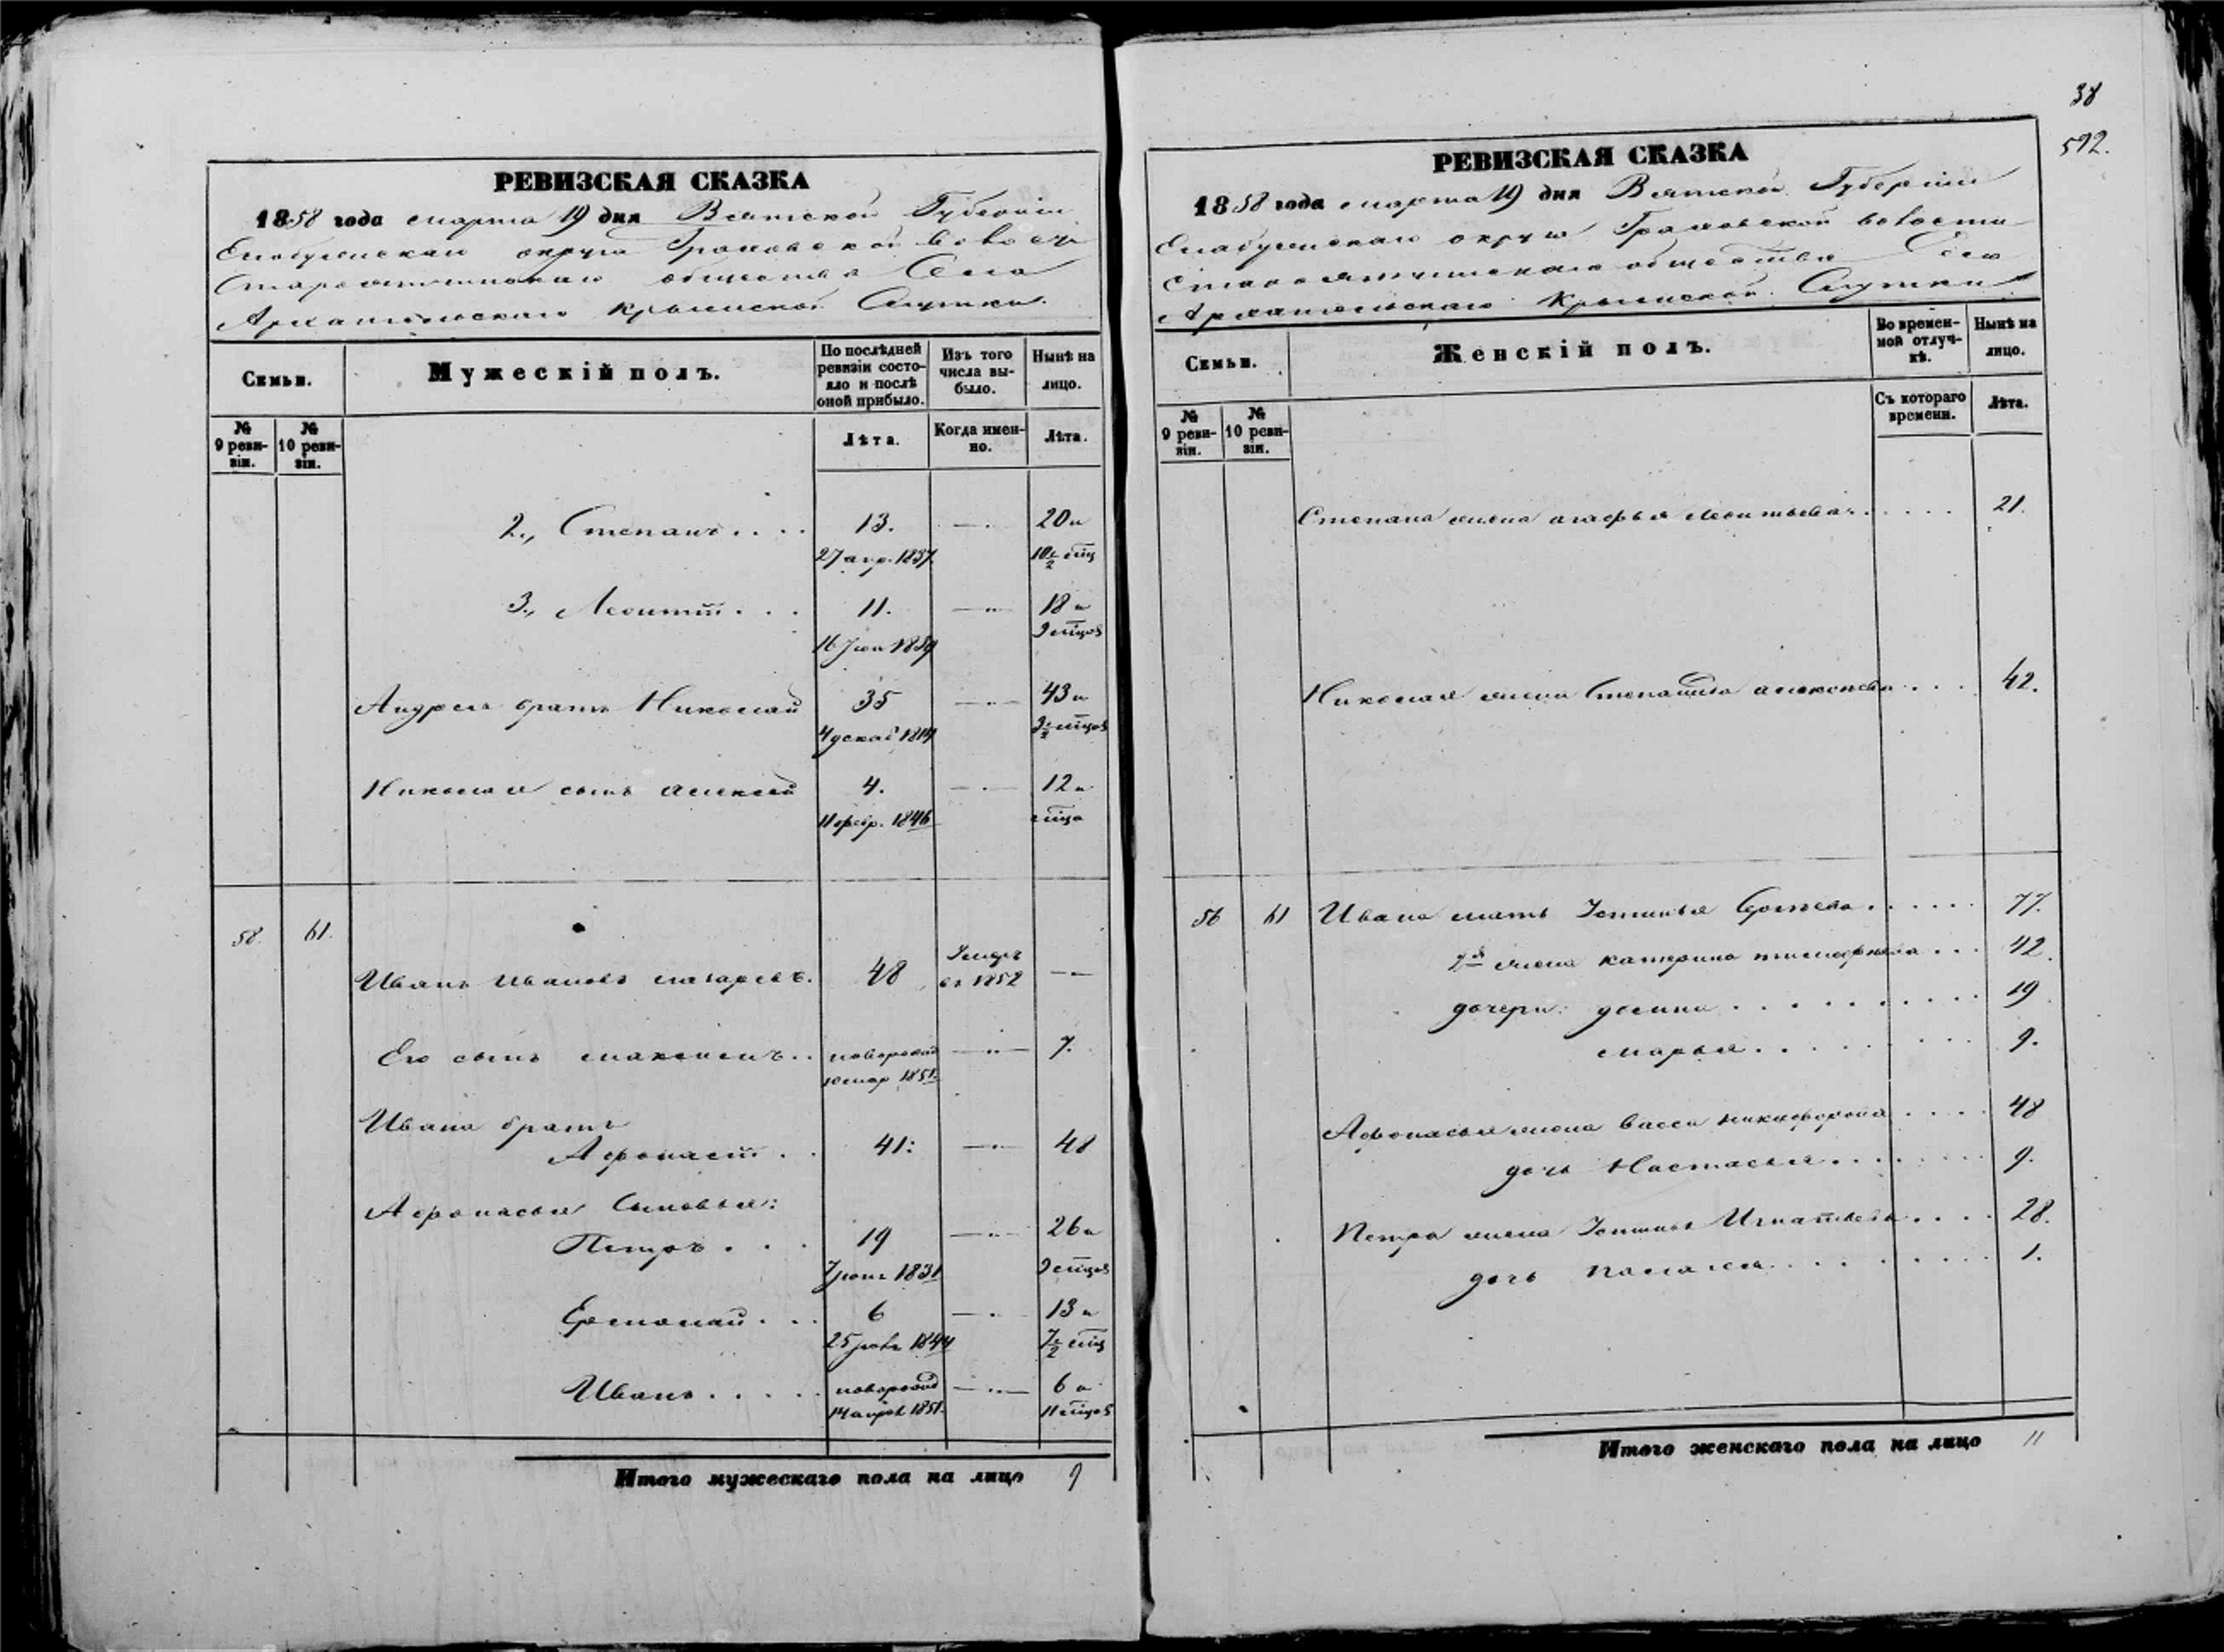 38
592.
РЕВИЗСКАЯ СКАЗКА
1858 года марта 19 дня Вятской Губернiи
Елабужскаго округа Граховской волости
общества Села
Архангельскаго Крымской Слутки.
Семьи.
Мужескiй полъ.
По послѣдней ревизiи состояло и послѣ оной прибыло.
Изъ того числа выбыло.
Нынѣ на лицо.
№ 9 ревизiи.
№ 10 ревизiи.
Лѣта.
Когда именно.
Лѣта.
2., Степанъ . . . . 13. —„— 20 и
27 апр. 1837. 10½ мѣц
3., Леонтiй . . . 11. —„— 18 и
16 Iюн 1839 9 мѣцов
Андрея братъ Николай 35 —„— 43 и
4 декаб 1814 3½ мѣцов
Николая сынъ алексей 4. —„— 12 и
11 февр. 1846 мѣца
58. 61.
Иванъ Ивановъ макаровъ. 48 Умеръ въ 1852 —„—
Его сынъ максимъ . . новорожд —„— 7.
10 мар 1851.
Ивана братъ
Афонасiй . . 41: —„— 48
Афонасья Сыновья:
Петръ . . . 19 —„— 26 и
Iюня 1831 9 мѣцов
Ермолай . . . 6 —„— 13 и
25 1844 7½ мѣц
Иванъ . . . . . новорожд —„— 6 и
14 апрѣл 1851. 11 мѣцов
Итого мужескаго пола на лицо 9
РЕВИЗСКАЯ СКАЗКА
1858 года марта 19 дня Вятской Губернiи
Елабужскаго округа Граховской волости
общества Села
Архангельскаго Крымской Слутки
Семьи.
Женскiй полъ.
Во временной отлучкѣ.
Нынѣ на лицо.
№ 9 ревизiи.
№ 10 ревизiи.
Съ котораго времени.
Лѣта.
Степана жена агафья леонтьева . . . . . 21.
Николая жена Степанида алексеева . . . 42.
56 61 Ивана мать Устинья . . . . . . 77.
2я жена катерина тимофеева . . . 42.
дочери: домна . . . . . . . . . . 19
марья . . . . . . . . . 9.
Афонасья жена васса никифорова . . . . 48
дочь Настасья . . . . . . . 9.
Петра жена Устинья Игнатьева . . . . 28.
дочь . . . . . . . . . 1.
Итого женскаго пола на лицо 11